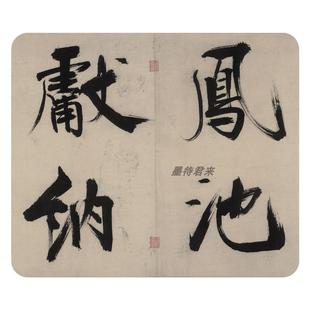 鳳池
獻納
墨待君来